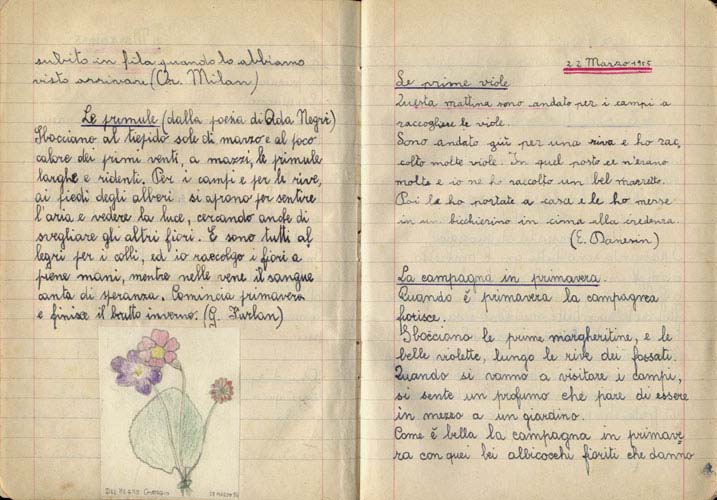 subito in fila quando lo abbiamo
visto arrivare (Ch. Milan)
Le primule (dalla poesia di Ada Negri)
Sbocciano al tiepido sole di marzo e al poco
calore dei primi venti, a mazzi, le primule
larghe e ridenti. Per i campi e per le rive,
ai piedi degli alberi si aprono per sentire
l'aria e vedere la luce, cercando anche di
svegliare gli altri fiori. E sono tutti al
legri per i colli, ed io raccolgo i fiori a
piene mani, mentre nelle vene il sangue
canta di speranza. Comincia primavera
e finisce il brutto inverno. (G. Furlan)
DEL NEGRO GIORGIO
22 Marzo
Le prime viole
Questa mattina sono andato per i campi a
raccogliere le viole.
Sono andato giù per una riva e ho rac,
colto molte viole. In quel posto ce n'erano
molte e io ne ho raccolto un bel mazzetto.
Poi le ho portate a casa e le ho messe
in un bicchierino in cima alla credenza.
(E. Danesin)
La campagna in primavera.
Quando è primavera la campagna
fiorisce.
Sbocciano le prime margheritine, e le
belle violette, lungo le rive dei fossati.
Quando si vanno a visitare i campi,
si sente un profumo che pare di essere
in mezzo a un giardino.
Come è bella la campagna in primave
ra con quei bei albicocchi fioriti che danno